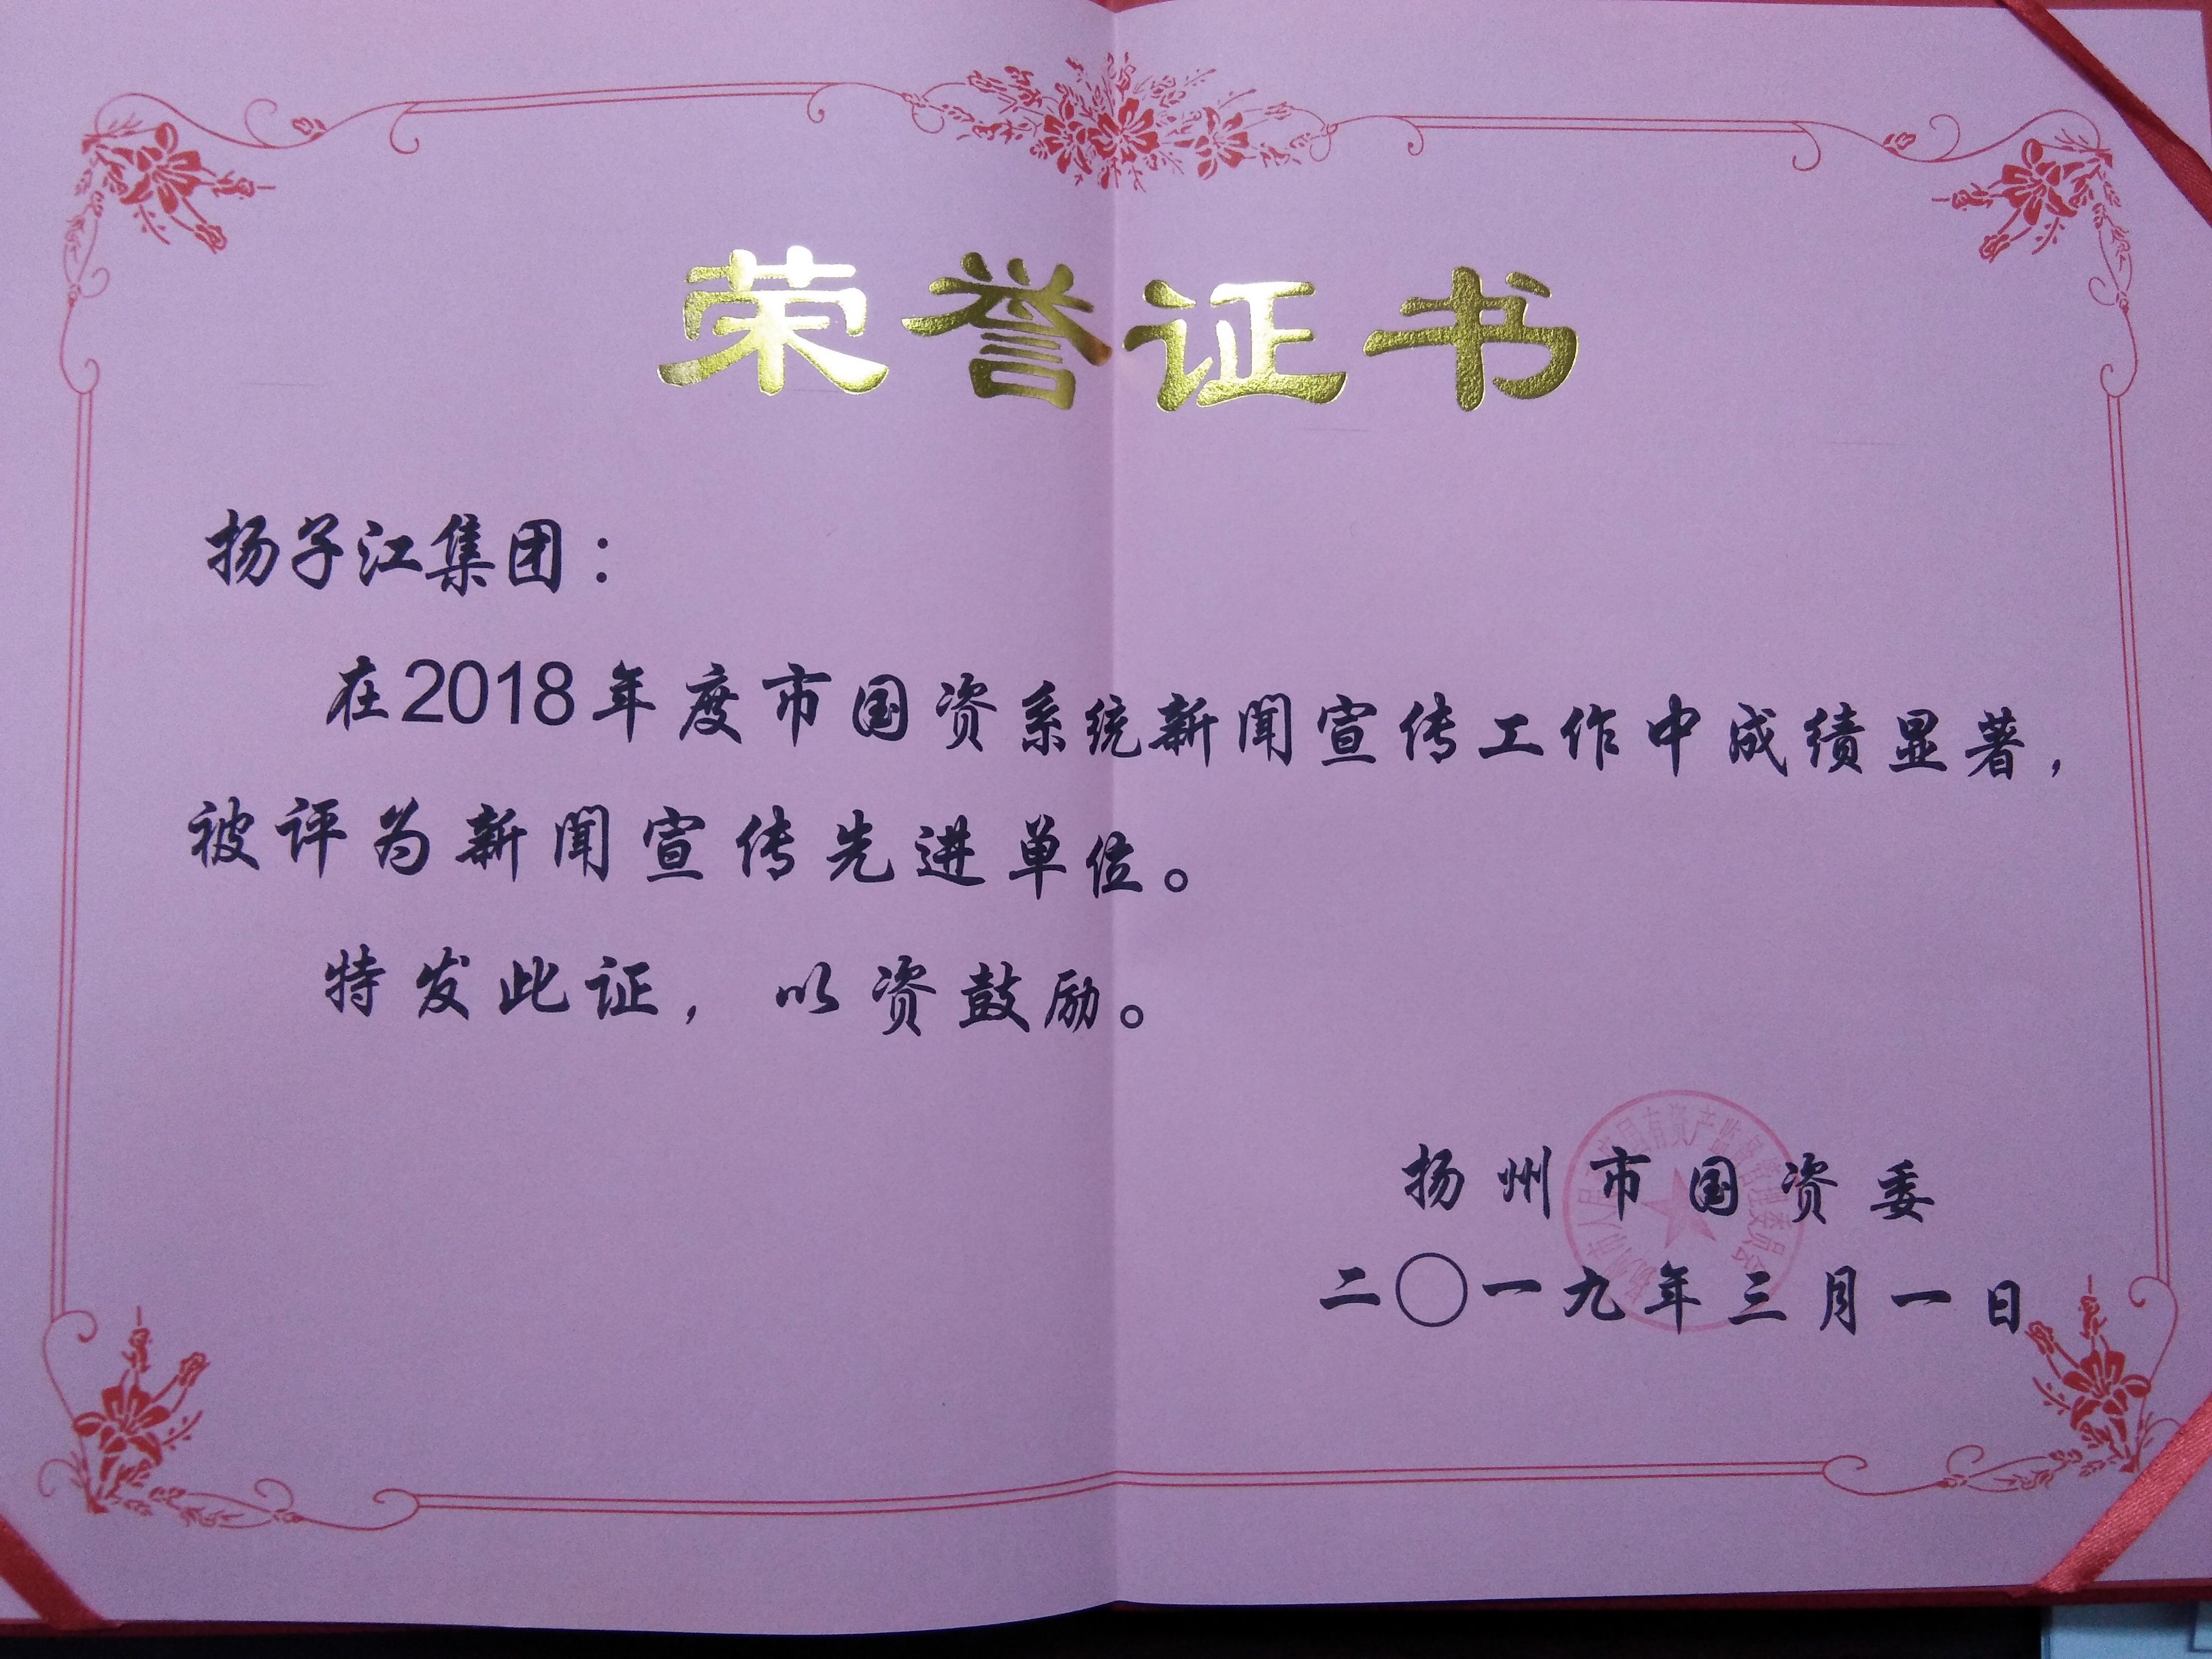 荣誉证书
扬子江集团：
在2018年度市国资系统新闻宣传工作中成绩显著，
被评为新闻宣传先进单位。
特发此证，以资鼓励。
扬州市国资委
扬州市人民政府国有资产监督管理委员会
二〇一九年三月一日